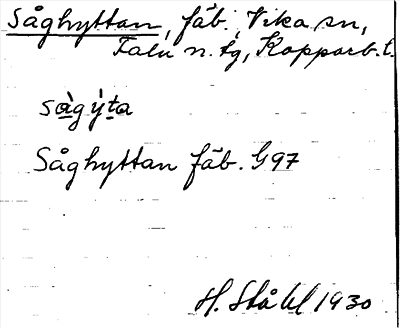 Såghyttan, fäb., Vika sn,
Falu n. tg, Kopparb. l.
sàgy̆̀ta
Såghyttan fäb. G97
H. Ståhl 1930